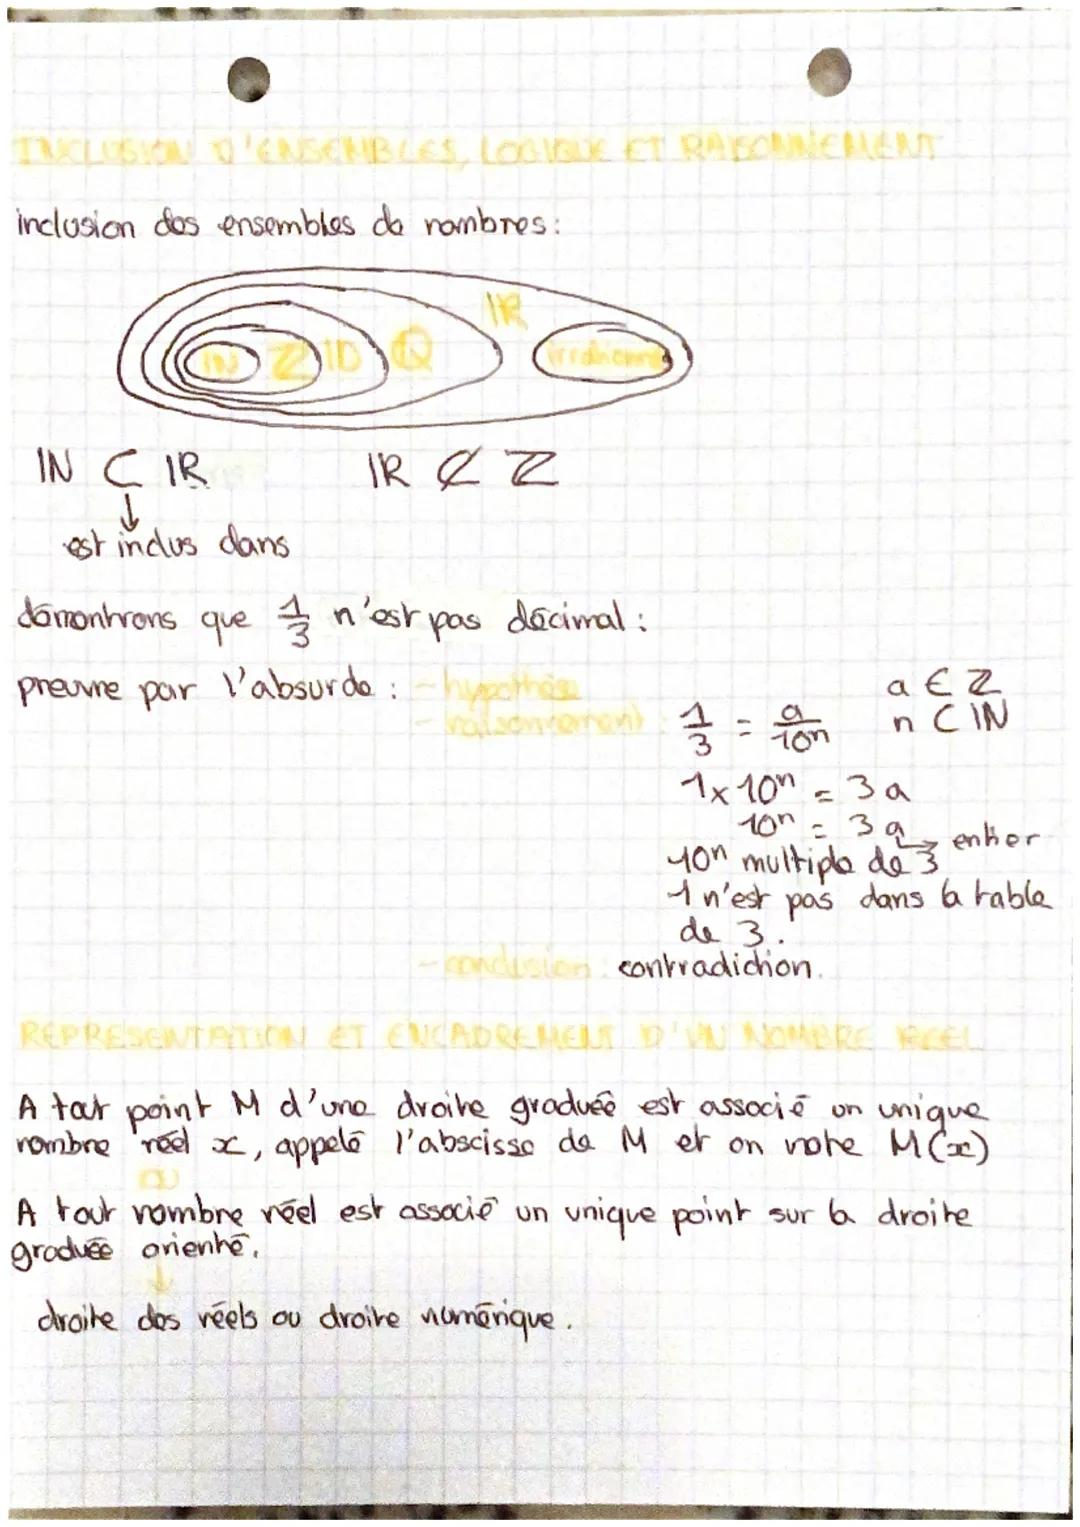 INCLUSION D'ENSEMBLES, LOGIQUE ET RAISONNEMENT
inclusion des ensembles de nombres :
IN Z ID Q IR irrationnels
IN ⊂ IR IR ⊄ Z
↓
est inclus dans
démontrons que 1/3 n'est pas décimal :
preuve par l'absurde : - hypothèse
a ∈ Z
- raisonnement : 1/3 = a/10ⁿ n ⊂ IN
1 x 10ⁿ = 3 a
10ⁿ = 3 a → entier
10ⁿ multiple de 3
1 n'est pas dans la table
de 3.
- conclusion : contradiction.
REPRÉSENTATION ET ENCADREMENT D'UN NOMBRE RÉEL
A tout point M d'une droite graduée est associé un unique
nombre réel x, appelé l'abscisse de M et on note M(x)
OU
A tout nombre réel est associé un unique point sur la droite
graduée orienté.
↓
droite des réels ou droite numérique.